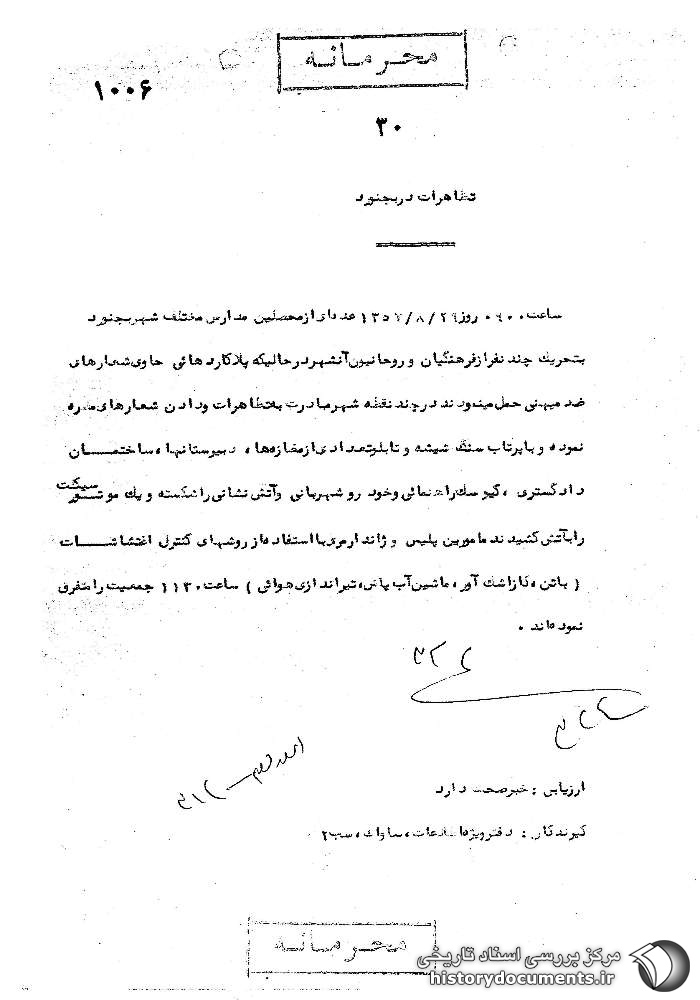 محرمانه
۱۰۰۶
۳۰
تظاهرات در بجنورد
ساعت ۰۹۰۰ روز ۱۳۵۷/۸/۲۹ عده‌ای از محصلین مدارس مختلف شهر بجنورد
بتحریک چند نفر از فرهنگیان و روحانیون آنشهر در حالیکه پلاکاردهائی حاوی شعارهای
ضد میهنی حمل مینمودند در چند نقطه شهر مبادرت به تظاهرات و دادن شعارهای مضره
نموده و با پرتاب سنگ شیشه و تابلو تعدادی از مغازه‌ها، دبیرستانها، ساختمان
دادگستری، کیوسک راهنمائی و خودرو شهربانی و آتش نشانی را شکسته و یک موتور سیکلت
را بآتش کشیدند مامورین پلیس و ژاندارمری با استفاده از روشهای کنترل اغتشاشات
( باتن، گاز اشک آور، ماشین آب پاش، تیراندازی هوائی ) ساعت ۱۱۳۰ جمعیت را متفرق
نموده‌اند.
ارزیابی : خبر صحت دارد
گیرندگان : دفتر ویژه اطلاعات، ساواک، سب۲
محرمانه
مرکز بررسی اسناد تاریخی
historydocuments.ir